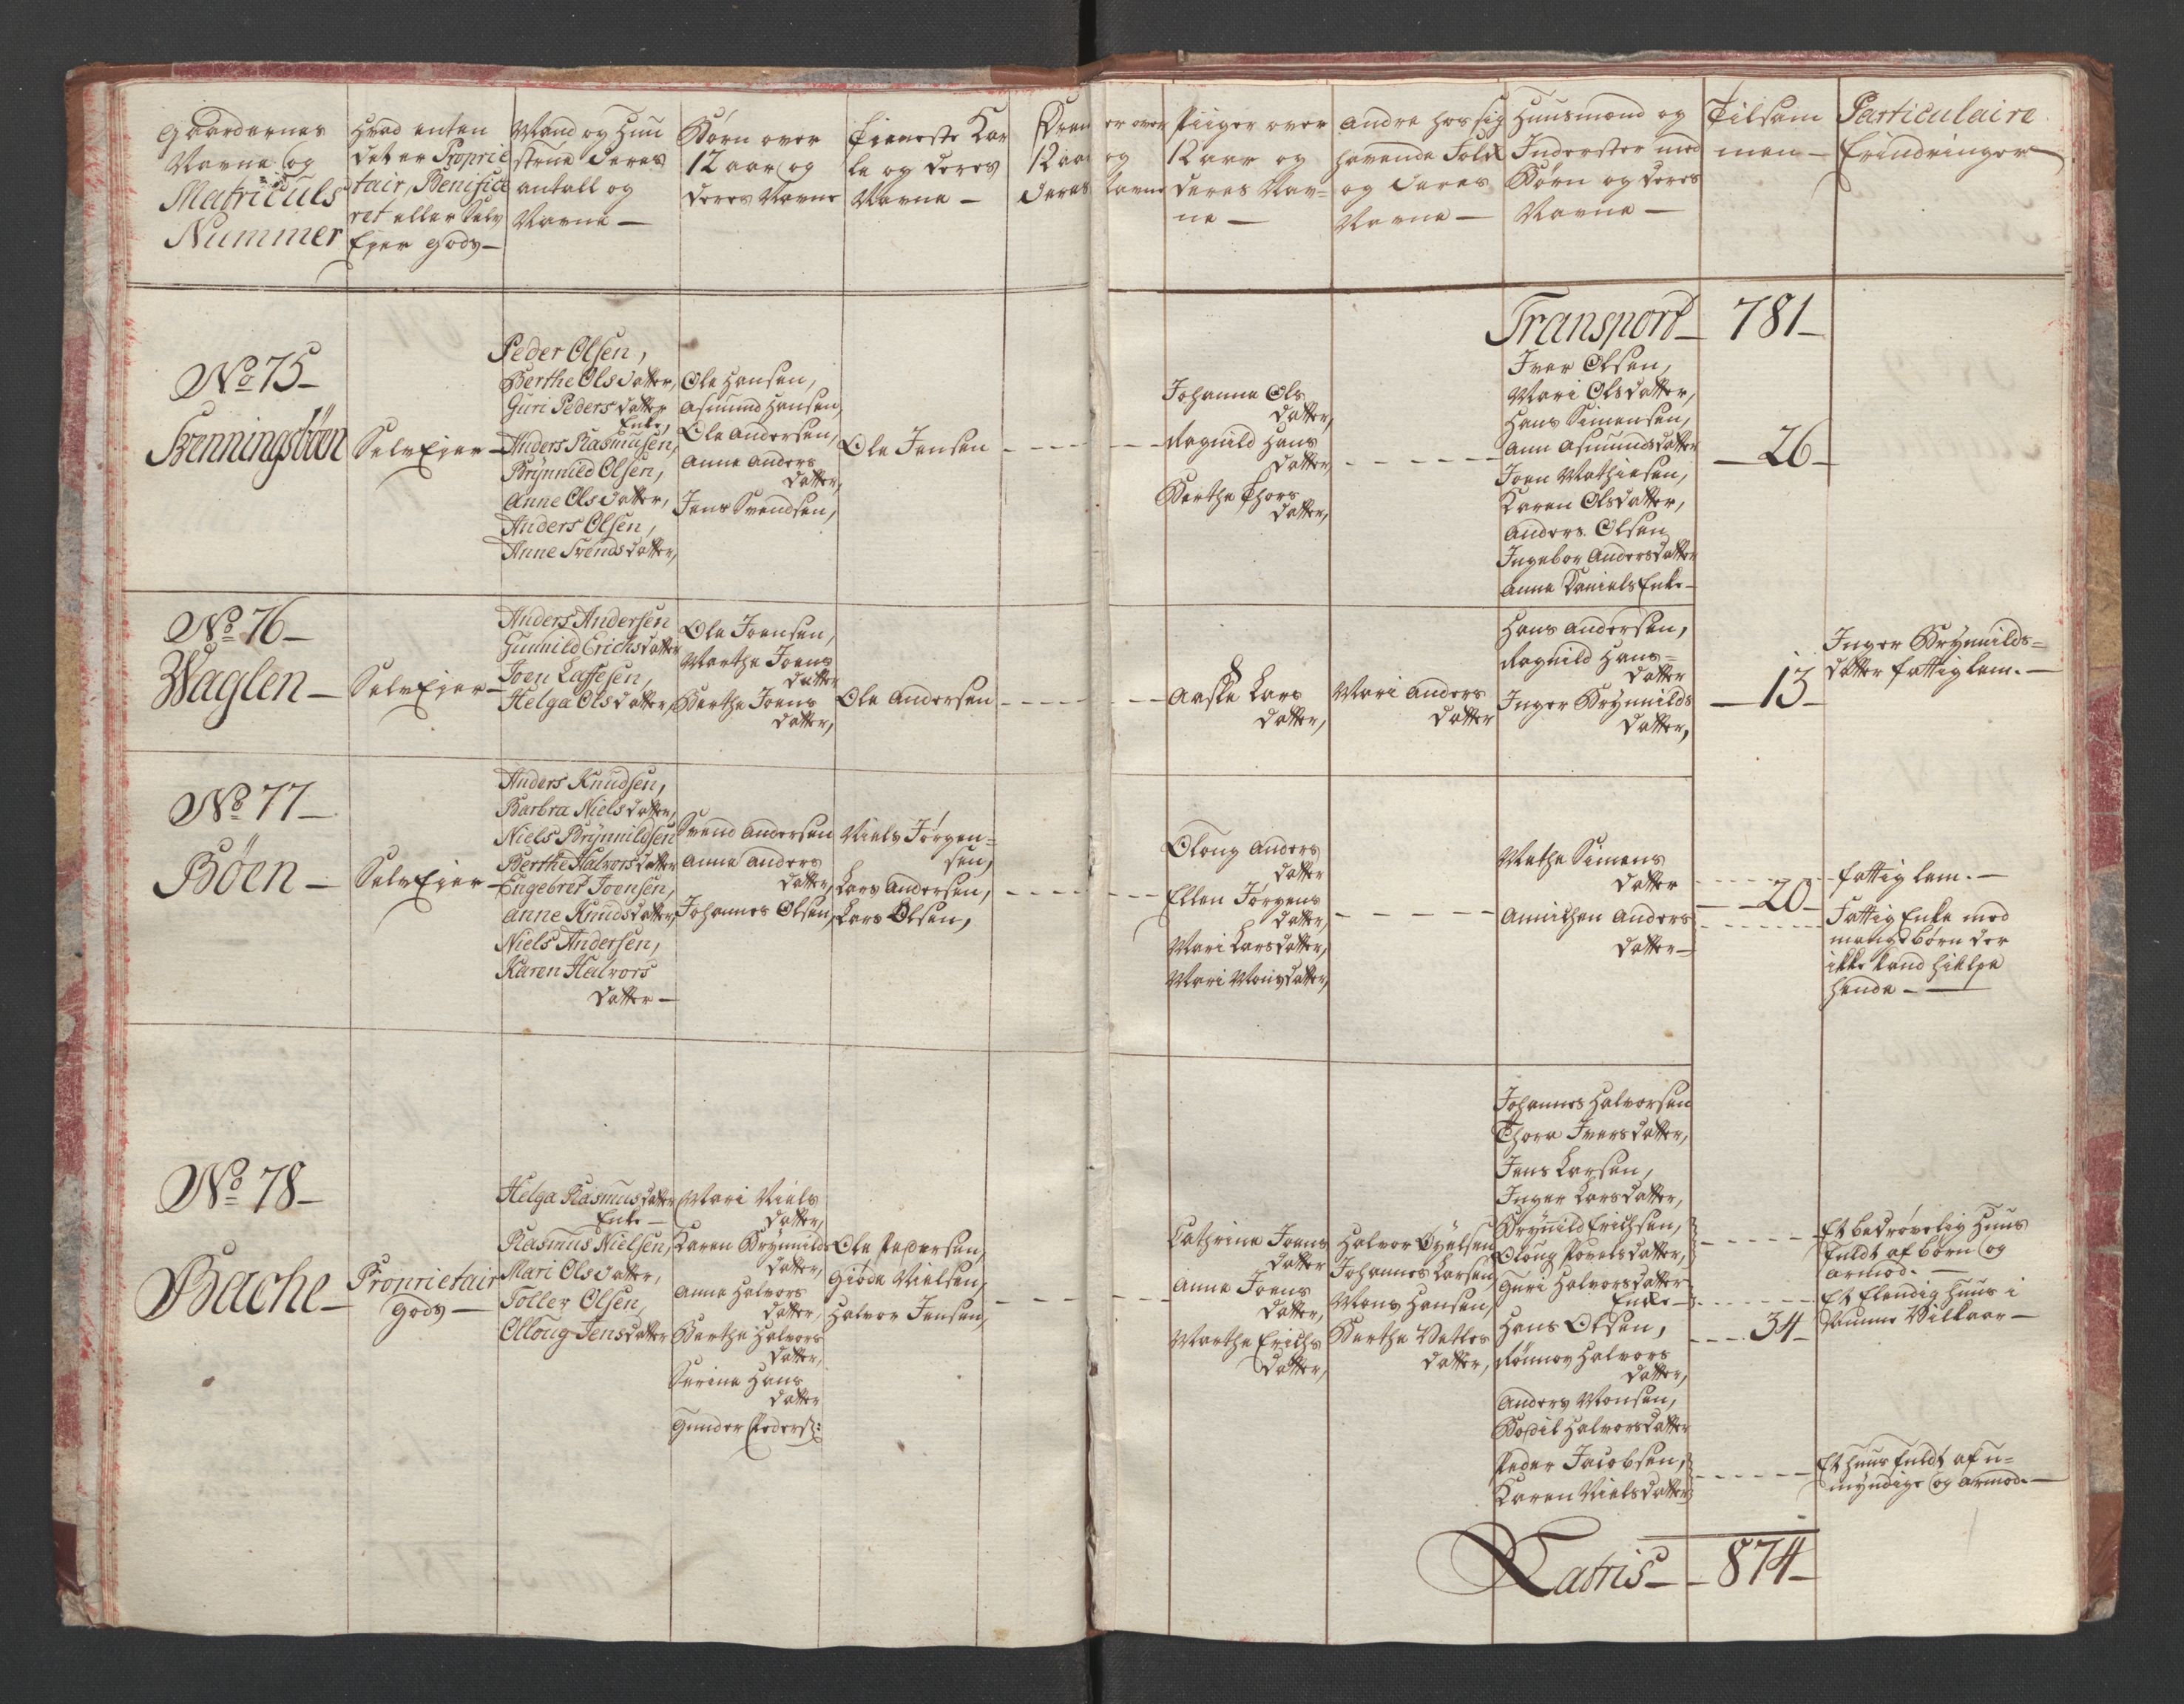 Gaardernes
Navne og
Matriculs
Nummer
Hvad enten
det er Proprie
tair, Benifice
ret eller Selv
Ejer Gods -
Mand og Huu
strue deres
antall og
Navne -
Børn over
12 aar og
deres Navne
Tieneste Kar
le og deres
Navne -
Dren
12 aa
deres
er over
og
Navne
Piiger over
12 aar og
deres Nav-
ne -
Andre hos sig
havende Folk
og deres
Navne -
Huusmænd og
Inderster med
Børn og deres
Navne -
Tilsam
men -
Particulaire
Erindringer
Transport - 781 -
No 75 -
Svenningsböen
SelvEjer -
Peder Olsen,
Berthe Olsdatter,
Guri Pedersdatter
Enke,
Anders Rasmusen,
Brÿnnild Olsen,
Anne Olsdatter,
Anders Olsen,
Anne Svendsdatter,
Ole Hansen,
Asmund Hansen,
Ole Andersen,
Anne Anders
datter,
Jens Svendsen,
Ole Jensen
Johanne Ols
datter,
Ragnild Hans
datter,
Berthe Thors
datter,
Iver Olsen,
Mari Olsdatter,
Hans Simensen,
Ann Asmundsdatter
Joen Mathiesen,
Karen Olsdatter,
Anders Olsen
Ingebor Andersdatter
Anne Daniels Enke -
- 26 -
No 76 -
Waglen -
SelvEjer -
Anders Andersen
Gunnild Erichsdatter
Joen Lassesen,
Helga Olsdatter,
Ole Joensen,
Marthe Joens
datter
Berthe Joens
datter,
Ole Andersen
Aaste Lars
datter,
Mari Anders
datter
Hans Andersen,
Ragnild Hans-
datter
Inger Brynnilds
datter,
- 13 -
Inger Brynnilds-
datter fattig lem. -
No 77 -
Böen -
SelvEjer -
Anders Knudsen,
Barbra Nielsdatter,
Niels Brÿnnildsen
Berthe Halvorsdatter
Engebret Joensen,
Anne Knudsdatter,
Niels Andersen,
Karen Halvors
datter -
Svend Andersen
Anne Anders
datter,
Johannes Olsen,
Niels Jørgen-
sen,
Lars Andersen,
Lars Olsen,
Oloug Anders
datter
Ellen Jørgens
datter,
Mari Larsdatter,
Mari Monsdatter,
Mathe Simens
datter
Annichen Anders
datter -
- 20 -
fattig lem. -
Fattig Enke med
mange børn der
ikke kand hielpe
hende -
No 78 -
Bache -
Proprietair
Gods -
Helga Rasmusdatter
Enke -
Rasmus Nielsen,
Mari Olsdatter,
Toller Olsen,
Olloug Jensdatter
Mari Niels
datter,
Karen Brynnilds
datter,
Anne Halvors
datter,
Berthe Halvors
datter,
Serine Hans
datter
Gunder Peders:
Ole Pedersen,
Giöde Nielsen,
Halvor Jensen,
Cathrine Joens
datter
Anne Joens
datter,
Marthe Erichs
datter,
Halvor Øyelsen
Johannes Larsen
Mons Hansen,
Berthe Vetles
datter,
Johannes Halvorsen
Thore Iversdatter,
Jens Larsen,
Inger Larsdatter,
Brÿnild Erichsen,
Oloug Povelsdatter,
Guri Halvorsdatter
Enke -
Hans Olsen,
Rønnov Halvors
datter,
Anders Monsen,
Bodil Halvorsdatter
Peder Jacobsen,
Karen Nielsdatter
34 -
Et bedrøvelig Huus
fuldt af børn og
armod. -
Et Elendig Huus i
samme Vilkaar -
Et Huus fuldt af u-
mÿndige og armod. -
Latris - 874 -